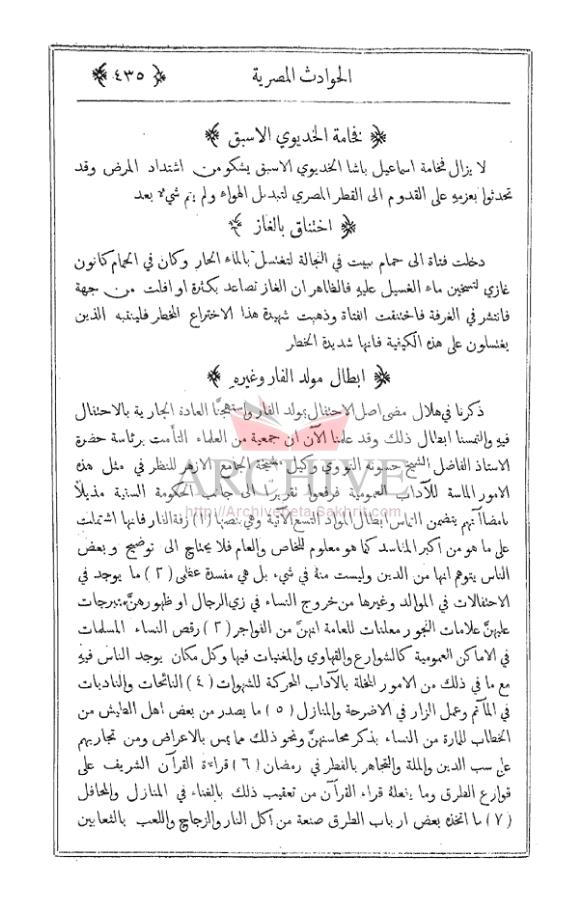 الحوادث المصرية ﴿ ٤٣٥ ﴾
﴿ فخامة الخديوي الاسبق ﴾
لا يزال فخامة اسماعيل باشا الخديوي الاسبق يشكو من اشتداد المرض وقد
تحدثوا بعزمهِ على القدوم الى القطر المصري لتبديل الهواء ولم يتم شيء بعد
﴿ اختناق بالغاز ﴾
دخلت فتاة الى حمام بيت في الفجالة لتغتسل بالماء الحار وكان في الحمام كانون
غازي لتسخين ماء الغسيل عليهِ فالظاهر ان الغاز تصاعد بكثرة او افلت من جهة
فانتشر في الغرفة فاختنقت الفتاة وذهبت شهيدة هذا الاختراع الخطر فلينتبه الذين
يغتسلون على هذه الكيفية فانها شديدة الخطر
﴿ ابطال مولد الفار وغيره ﴾
ذكرنا في هلال مضى اصل الاحتفال بمولد الفار واستهجنّا العادة الجارية بالاحتفال
فيهِ والتمسنا ابطال ذلك وقد علمنا الآن ان جمعية من العلماء التأمت برئاسة حضرة
الاستاذ الفاضل الشيخ حسونه النووي وكيل مشيخة الجامع الازهر للنظر في مثل هذه
الامور الماسة للآداب العمومية فرفعوا تقريرًا الى جانب الحكومة السنية مذيلاً
بامضاآتهم يتضمن التماس ابطال المواد التسع الآتية وهي بنصها (١) زفة النار فانها اشتملت
على ما هو من اكبر المفاسد كما هو معلوم للخاص والعام فلا يحتاج الى توضيح وبعض
الناس يتوهم انها من الدين وليست منهُ في شيء بل هي مفسدة عظمى (٢) ما يوجد في
الاحتفالات في الموالد وغيرها من خروج النساء في زي الرجال او ظهورهنَّ متبرجات
عليهنَّ علامات الفجور معلنات للعامة انهنَّ من الفواجر (٣) رقص النساء المسلمات
في الاماكن العمومية كالشوارع والقهاوي والمغنيات فيها وكل مكان يوجد الناس فيهِ
مع ما في ذلك من الامور المخلة بالآداب المحركة للشهوات (٤) النائحات والنادبات
في المآتم وعمل الزار في الاضرحة والمنازل (٥) ما يصدر من بعض اهل الطيش من
الخطاب للمارة من النساء بذكر محاسنهنَّ ونحو ذلك مما يمس بالاعراض ومن تجاريهم
على سب الدين والملة والتجاهر بالفطر في رمضان (٦) قراءة القرآن الشريف على
قوارع الطرق وما يفعلهُ قراء القرآن من تعقيب ذلك بالغناء في المنازل والمحافل
(٧) ما اتخذهُ بعض ارباب الطرق صنعة من اكل النار والزجاج واللعب بالثعابين
ARCHIVE
http://Archivebeta.Sakhrit.com